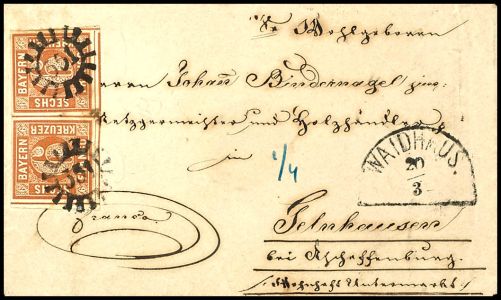 Sr Wohlgeboren
Herrn Johann Bindernagel jun.
Metzgermeister und Holzhändler
in
1/4
Gelnhausen
bei Aschaffenburg.
franco
WAIDHAUS.
20
3
BAYERN
SECHS
BAYERN
KREUZER
SECHS